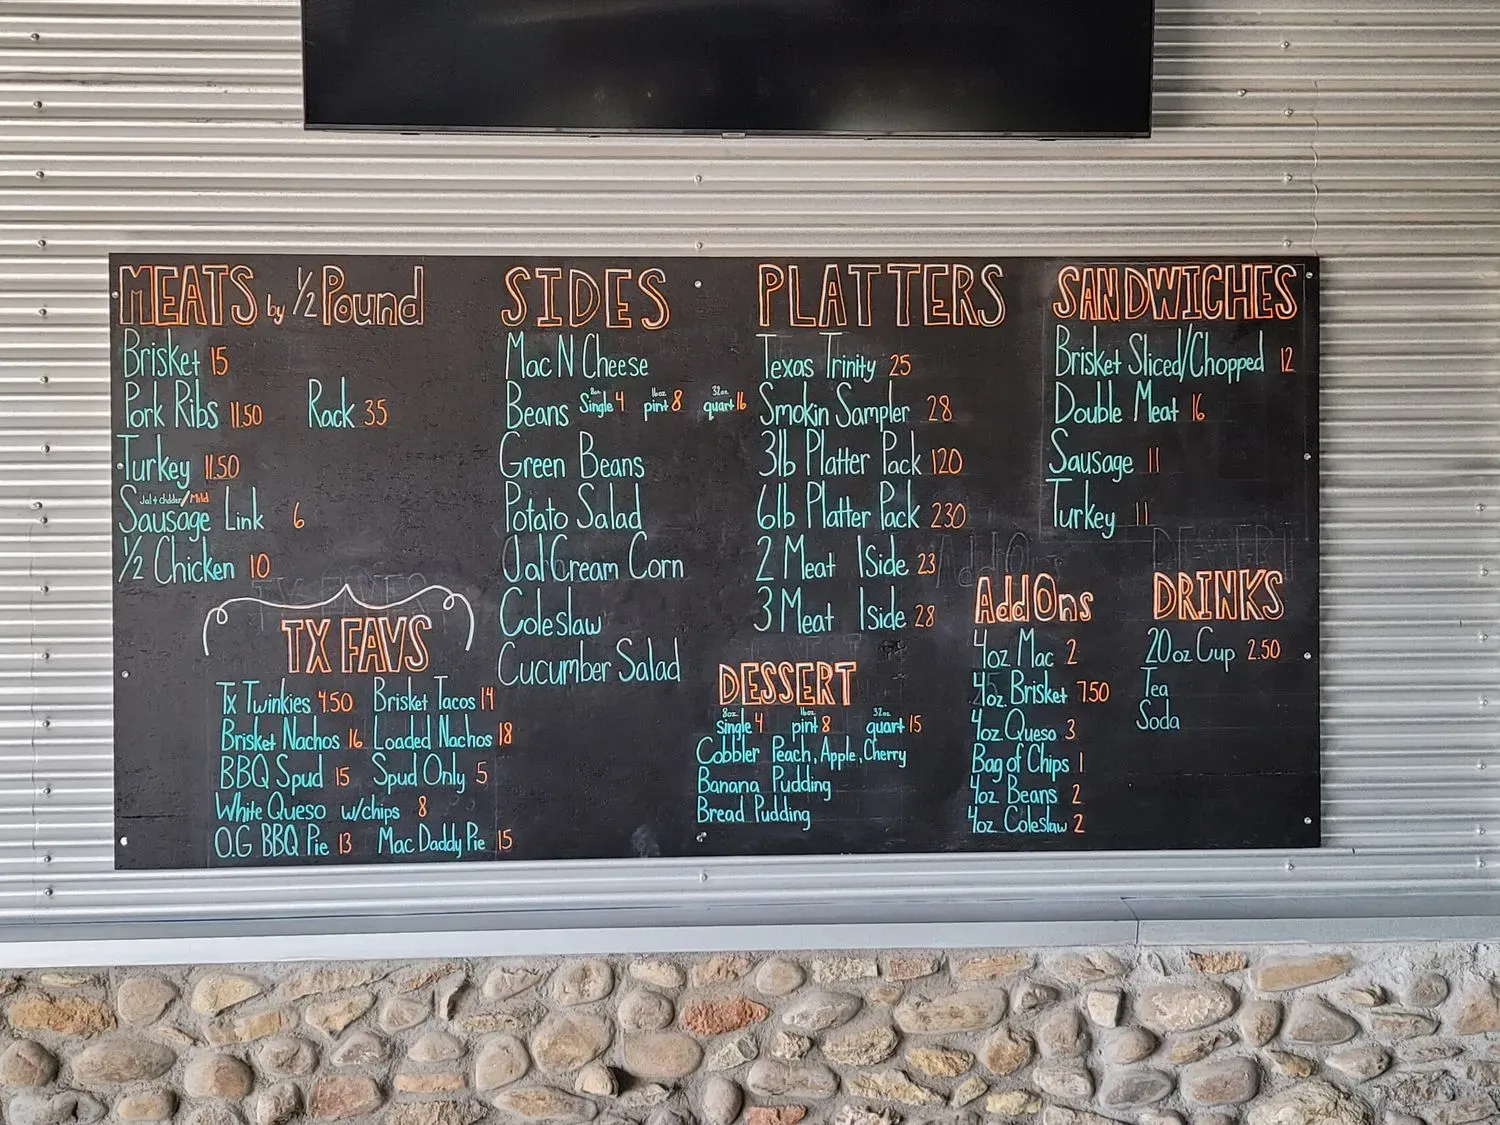 MEATS by 1/2 Pound
Brisket 15
Pork Ribs 11.50 Rack 35
Turkey 11.50
Jal + chddar/Mild
Sausage Link 6
1/2 Chicken 10
TX FAVS
Tx Twinkies 4.50 Brisket Tacos 14
Brisket Nachos 16 Loaded Nachos 18
BBQ Spud 15 Spud Only 5
White Queso w/chips 8
O.G BBQ Pie 13 Mac Daddy Pie 15
SIDES
Mac N Cheese
8oz 16oz 32oz
Beans Single 4 pint 8 quart 16
Green Beans
Potato Salad
Jal Cream Corn
Coleslaw
Cucumber Salad
PLATTERS
Texas Trinity 25
Smokin Sampler 28
3lb Platter Pack 120
6lb Platter Pack 230
2 Meat 1 Side 23
3 Meat 1 side 28
DESSERT
8oz 16oz 32oz
Single 4 pint 8 quart 15
Cobbler Peach, Apple, Cherry
Banana Pudding
Bread Pudding
SANDWICHES
Brisket Sliced/Chopped 12
Double Meat 16
Sausage 11
Turkey 11
AddOns
4oz Mac 2
4oz. Brisket 7.50
4oz. Queso 3
Bag of Chips 1
4oz Beans 2
4oz. Coleslaw 2
DRINKS
20oz Cup 2.50
Tea
Soda